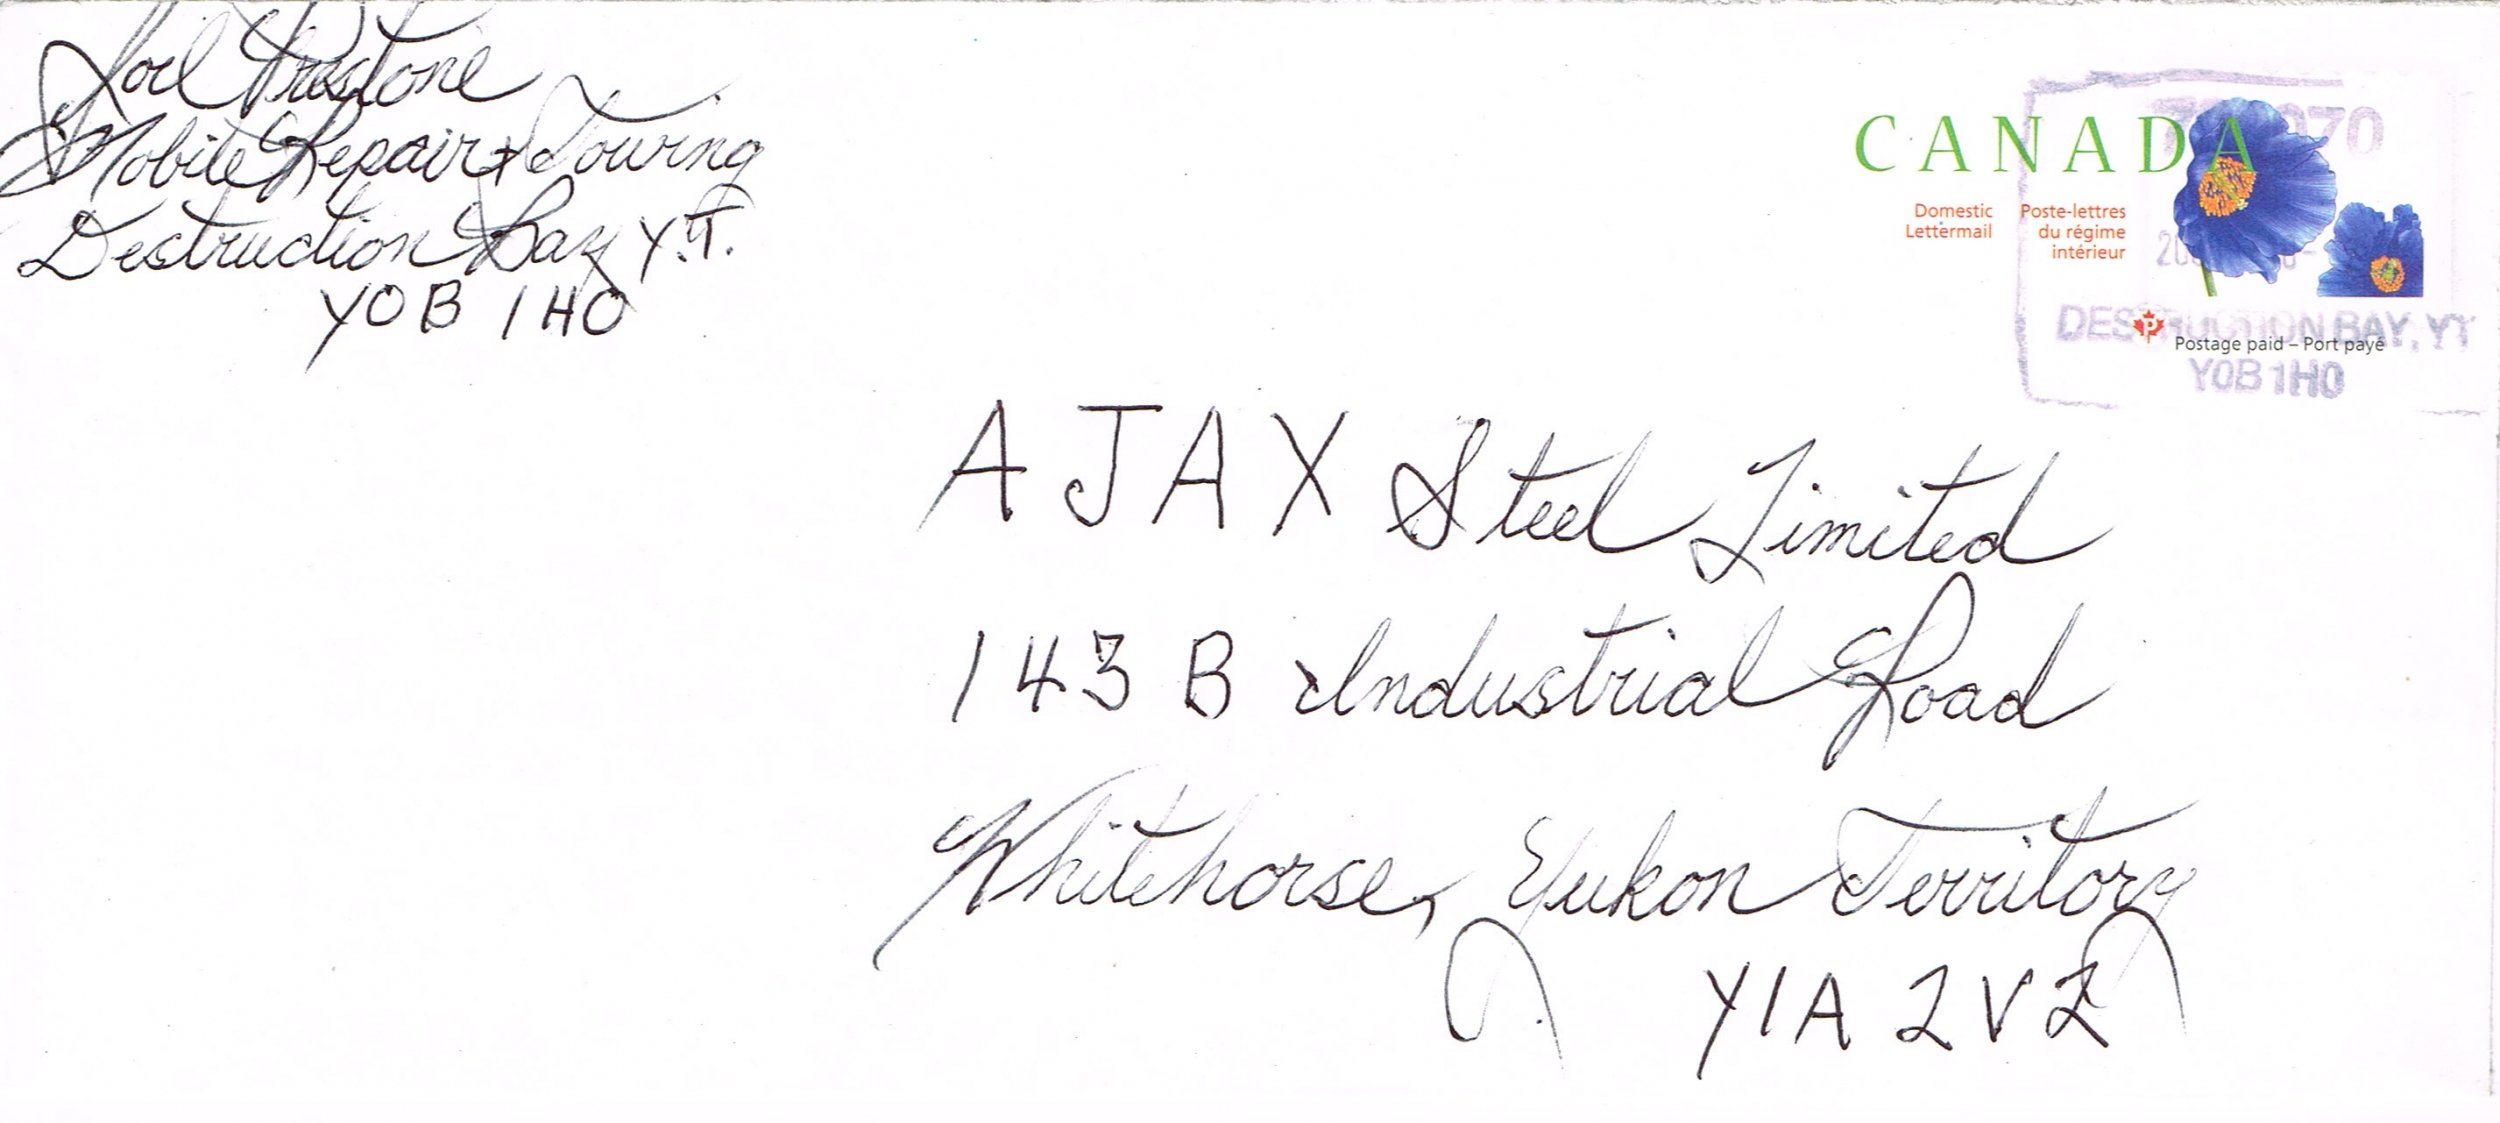 Joel Prestone
Mobile Repair + Towing
Destruction Bay Y.T.
Y0B 1H0
CANADA
Domestic Lettermail
Poste-lettres du régime intérieur
DESTRUCTION BAY, YT
Postage paid – Port payé
Y0B 1H0
AJAX Steel Limited
143 B Industrial Road
Whitehorse, Yukon Territory
Y1A 2V2